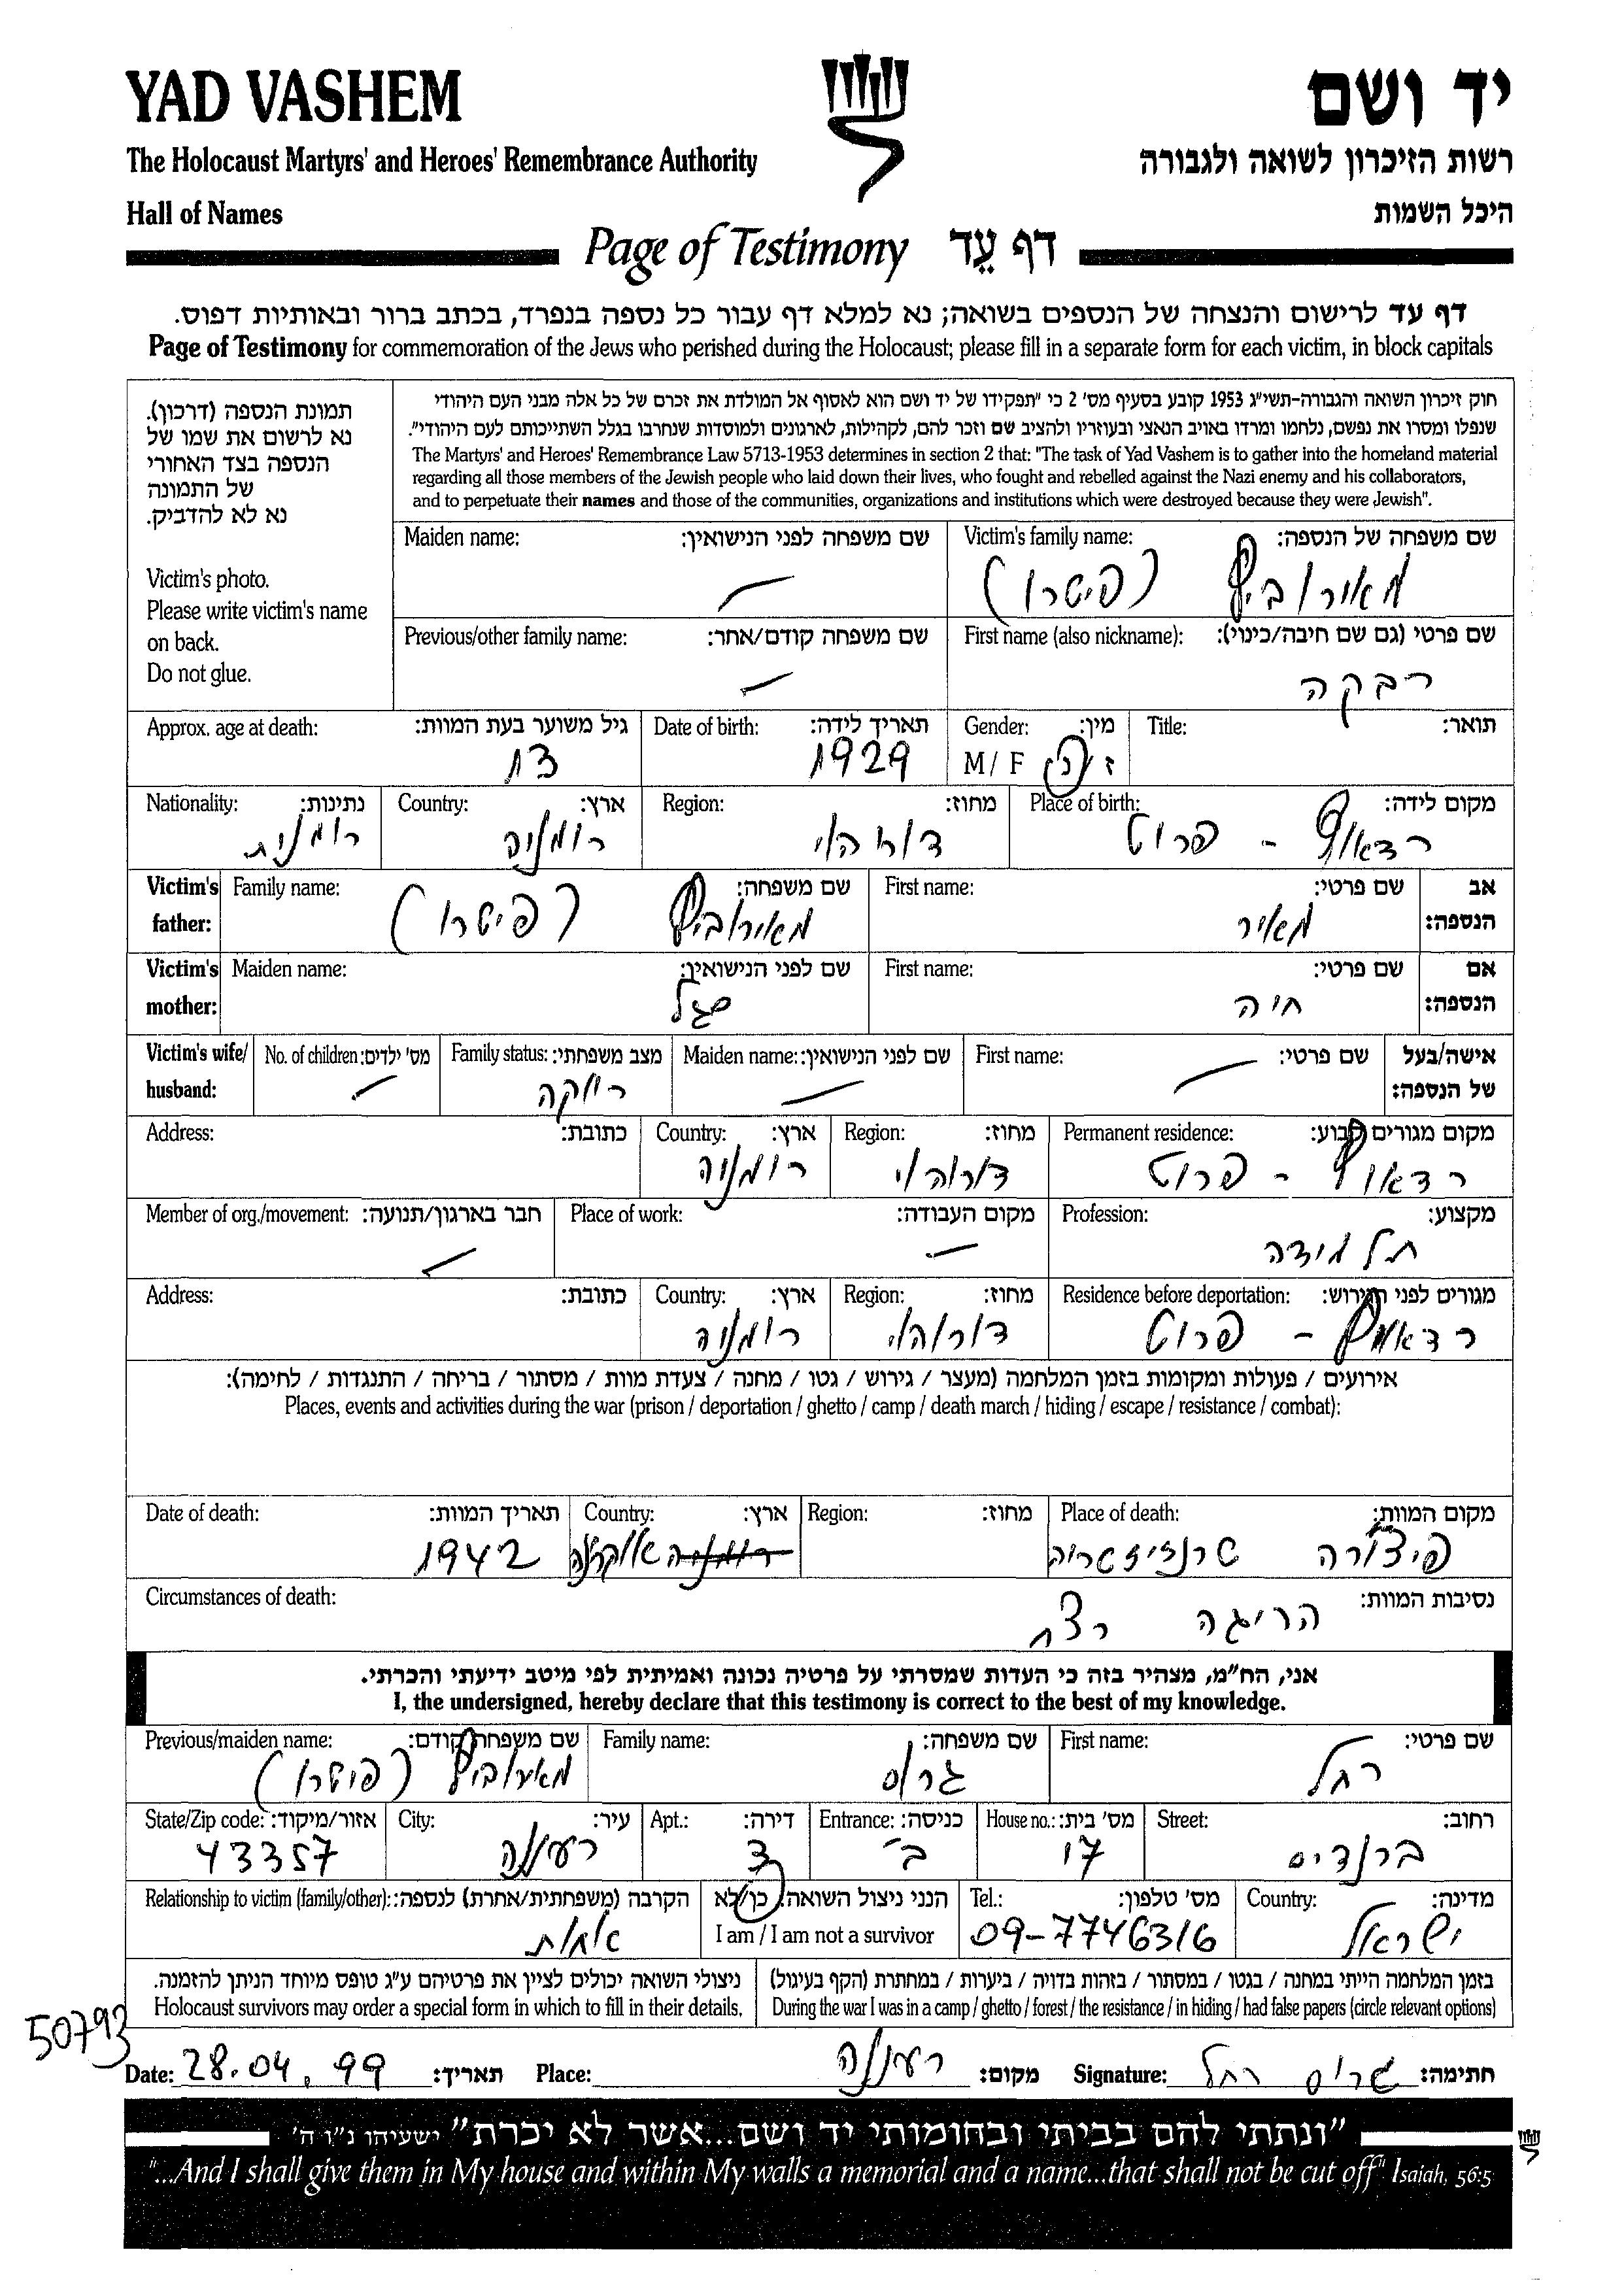 YAD VASHEM
יד ושם
The Holocaust Martyrs' and Heroes' Remembrance Authority
רשות הזיכרון לשואה ולגבורה
Hall of Names
היכל השמות
Page of Testimony דף עֵד
דף עד לרישום והנצחה של הנספים בשואה; נא למלא דף עבור כל נספה בנפרד, בכתב ברור ובאותיות דפוס.
Page of Testimony for commemoration of the Jews who perished during the Holocaust; please fill in a separate form for each victim, in block capitals
תמונת הנספה (דרכון).
נא לרשום את שמו של
הנספה בצד האחורי
של התמונה
נא לא להדביק.
Victim's photo.
Please write victim's name
on back.
Do not glue.
חוק זיכרון השואה והגבורה-תשי"ג 1953 קובע בסעיף מס' 2 כי "תפקידו של יד ושם הוא לאסוף אל המולדת את זכרם של כל אלה מבני העם היהודי
שנפלו ומסרו את נפשם, נלחמו ומרדו באויב הנאצי ובעוזריו ולהציב שם וזכר להם, לקהילות, לארגונים ולמוסדות שנחרבו בגלל השתייכותם לעם היהודי".
The Martyrs' and Heroes' Remembrance Law 5713-1953 determines in section 2 that: "The task of Yad Vashem is to gather into the homeland material
regarding all those members of the Jewish people who laid down their lives, who fought and rebelled against the Nazi enemy and his collaborators,
and to perpetuate their names and those of the communities, organizations and institutions which were destroyed because they were Jewish".
Victim's family name: שם משפחה של הנספה:
מאירוביץ (פישרו)
Maiden name: שם משפחה לפני הנישואין:
First name (also nickname): שם פרטי (גם שם חיבה/כינוי):
רבקה
Previous/other family name: שם משפחה קודם/אחר:
Title: תואר:
Gender: מין:
M / F ז / נ
Date of birth: תאריך לידה:
1929
Approx. age at death: גיל משוער בעת המוות:
13
Place of birth: מקום לידה:
רדאוץ - פרוט
Region: מחוז:
דורוהוי
Country: ארץ:
רומניה
Nationality: נתינות:
רומנית
אב הנספה:
First name: שם פרטי:
מאיר
Family name: שם משפחה:
מאירוביץ (פישרו)
Victim's father:
אם הנספה:
First name: שם פרטי:
חיה
Maiden name: שם לפני הנישואין:
סגל
Victim's mother:
אישה/בעל של הנספה:
First name: שם פרטי:
Maiden name: שם לפני הנישואין:
Family status: מצב משפחתי:
רווקה
No. of children: מס' ילדים:
Victim's wife/ husband:
Permanent residence: מקום מגורים קבוע:
רדאוץ - פרוט
Region: מחוז:
דורוהוי
Country: ארץ:
רומניה
Address: כתובת:
Profession: מקצוע:
תלמידה
Place of work: מקום העבודה:
Member of org./movement: חבר בארגון/תנועה:
Residence before deportation: מגורים לפני הגירוש:
רדאוץ - פרוט
Region: מחוז:
דורוהוי
Country: ארץ:
רומניה
Address: כתובת:
אירועים / פעולות ומקומות בזמן המלחמה (מעצר / גירוש / גטו / מחנה / צעדת מוות / מסתור / בריחה / התנגדות / לחימה):
Places, events and activities during the war (prison / deportation / ghetto / camp / death march / hiding / escape / resistance / combat):
Place of death: מקום המוות:
פיצ'ורה
Region: מחוז:
Country: ארץ:
רומניה אוקראינה
Date of death: תאריך המוות:
1942
Circumstances of death: נסיבות המוות:
הריגה רצח
אני, הח"מ, מצהיר בזה כי העדות שמסרתי על פרטיה נכונה ואמיתית לפי מיטב ידיעתי והכרתי.
I, the undersigned, hereby declare that this testimony is correct to the best of my knowledge.
First name: שם פרטי:
רחל
Family name: שם משפחה:
גרוס
Previous/maiden name: שם משפחה קודם:
מאירוביץ (פישרו)
Street: רחוב:
ברנדיס
House no.: מס' בית:
17
Entrance: כניסה:
ב'
Apt.: דירה:
3
City: עיר:
רעננה
State/Zip code: אזור/מיקוד:
43357
Country: מדינה:
ישראל
Tel.: מס' טלפון:
09-7746316
הנני ניצול השואה: כן/לא
I am / I am not a survivor
Relationship to victim (family/other): הקרבה (משפחתית/אחרת) לנספה:
אחות
בזמן המלחמה הייתי במחנה / בגטו / במסתור / בזהות בדויה / ביערות / במחתרת (הקף בעיגול)
During the war I was in a camp / ghetto / forest / the resistance / in hiding / had false papers (circle relevant options)
ניצולי השואה יכולים לציין את פרטיהם ע"ג טופס מיוחד הניתן להזמנה.
Holocaust survivors may order a special form in which to fill in their details.
50793
Date: 28.04.99 תאריך: Place: רעננה מקום: Signature: גרוס רחל חתימה:
"ונתתי להם בביתי ובחומותי יד ושם...אשר לא יכרת" ישעיהו נ"ו ה'
"...And I shall give them in My house and within My walls a memorial and a name...that shall not be cut off" Isaiah, 56:5